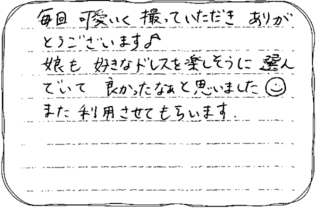 毎回 可愛いく 撮っていただき ありが
とうございます♪
娘も 好きなドレスを楽しそうに 選ん
でいて 良かったなぁと思いました☺
また 利用させてもらいます.